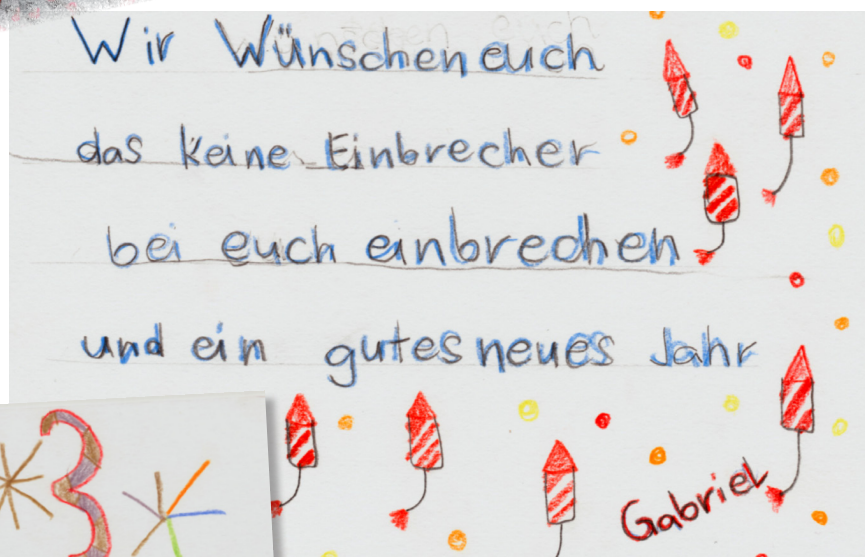 Wir Wünschen euch
das keine Einbrecher
bei euch einbrechen
und ein gutes neues Jahr
Gabriel
3